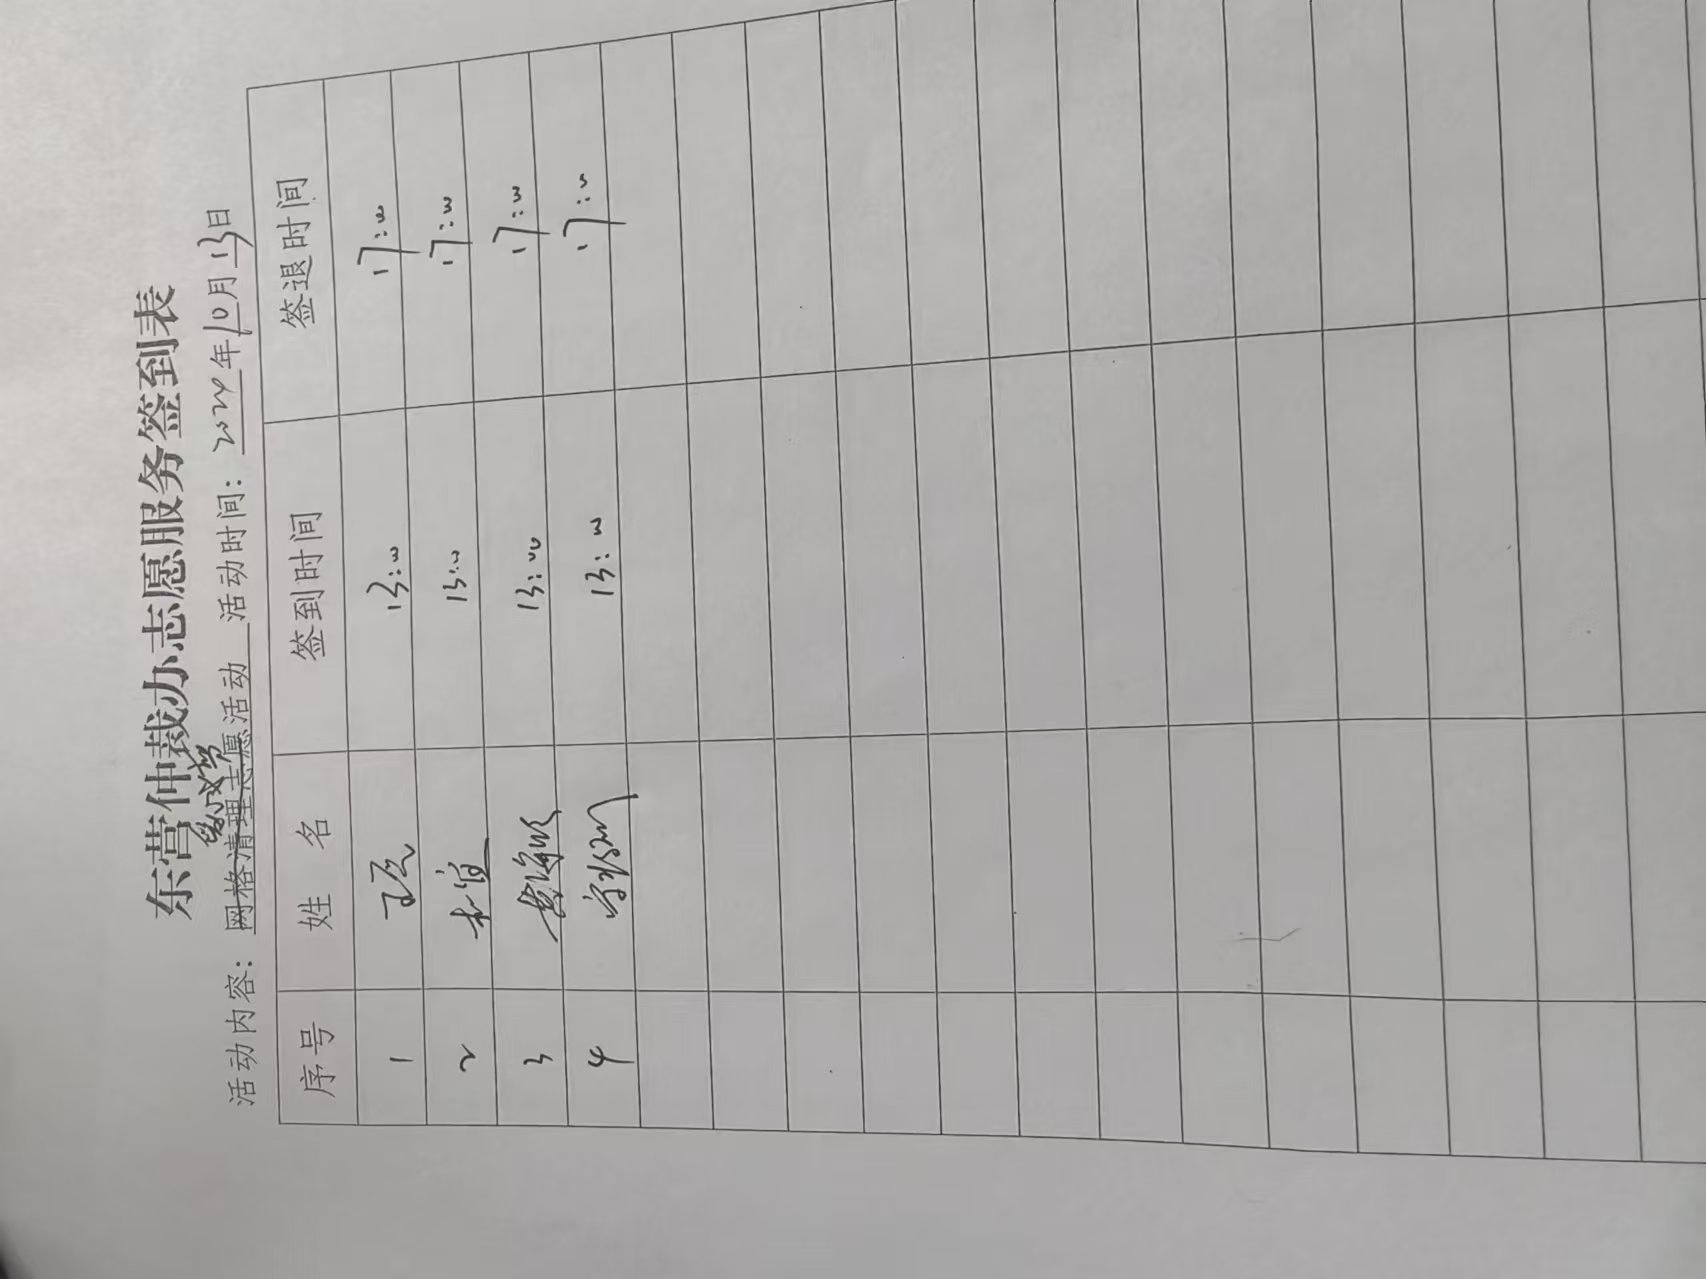 东营仲裁办志愿服务签到表
活动内容：网格清理志愿活动 活动时间：2024年10月13日
序号 姓 名 签到时间 签退时间
1 13:00 17:00
2 13:00 17:00
3 13:00 17:00
4 13:00 17:00